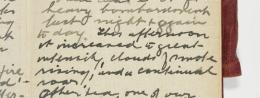 heavy bombardment
last night & again
to day. This afternoon
it increased to great
intensity, clouds of smoke
rising, and a continual
roar.
After tea, one of our